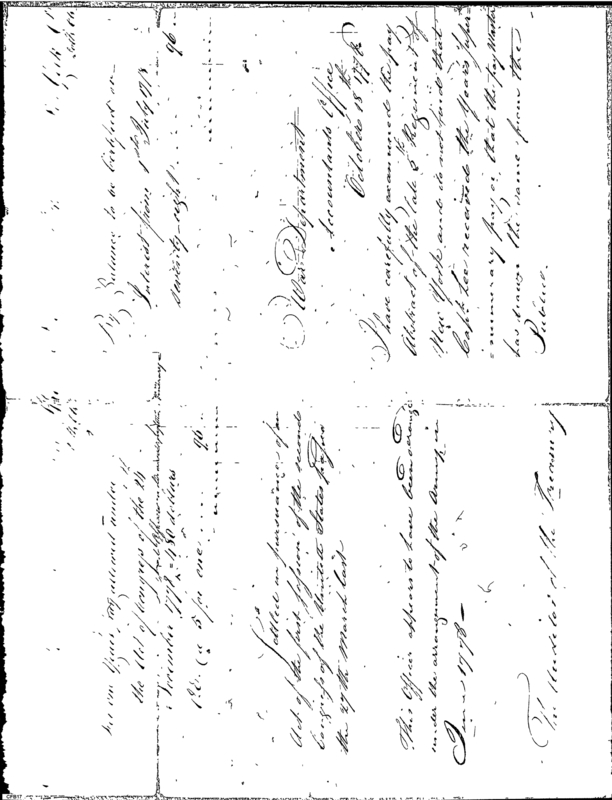 For one Years pay allowed under
the Act of Congress of the 24
November 1778 480 dollars
@ 5 for one . . . . 96
Settled in pursuance of an
Act of the first Session of the second
Congress of the United States passed
the 27th March last
This Officer appears to have been deranged
under the arrangement of the Army in
June 1778 —
The Auditor of the Treasury
By Balance to be Certified on
Interest from 1st July 1778
ninety-eight . . . . 96
War Department
Accountants Office
October 18th 179
I have carefully examined the pay
Abstract of the late 5th Regiment of
New York and do not find that
Capt. Lee received the Years super
numerary pay or that the pay Master
has drawn the same from the
Public.